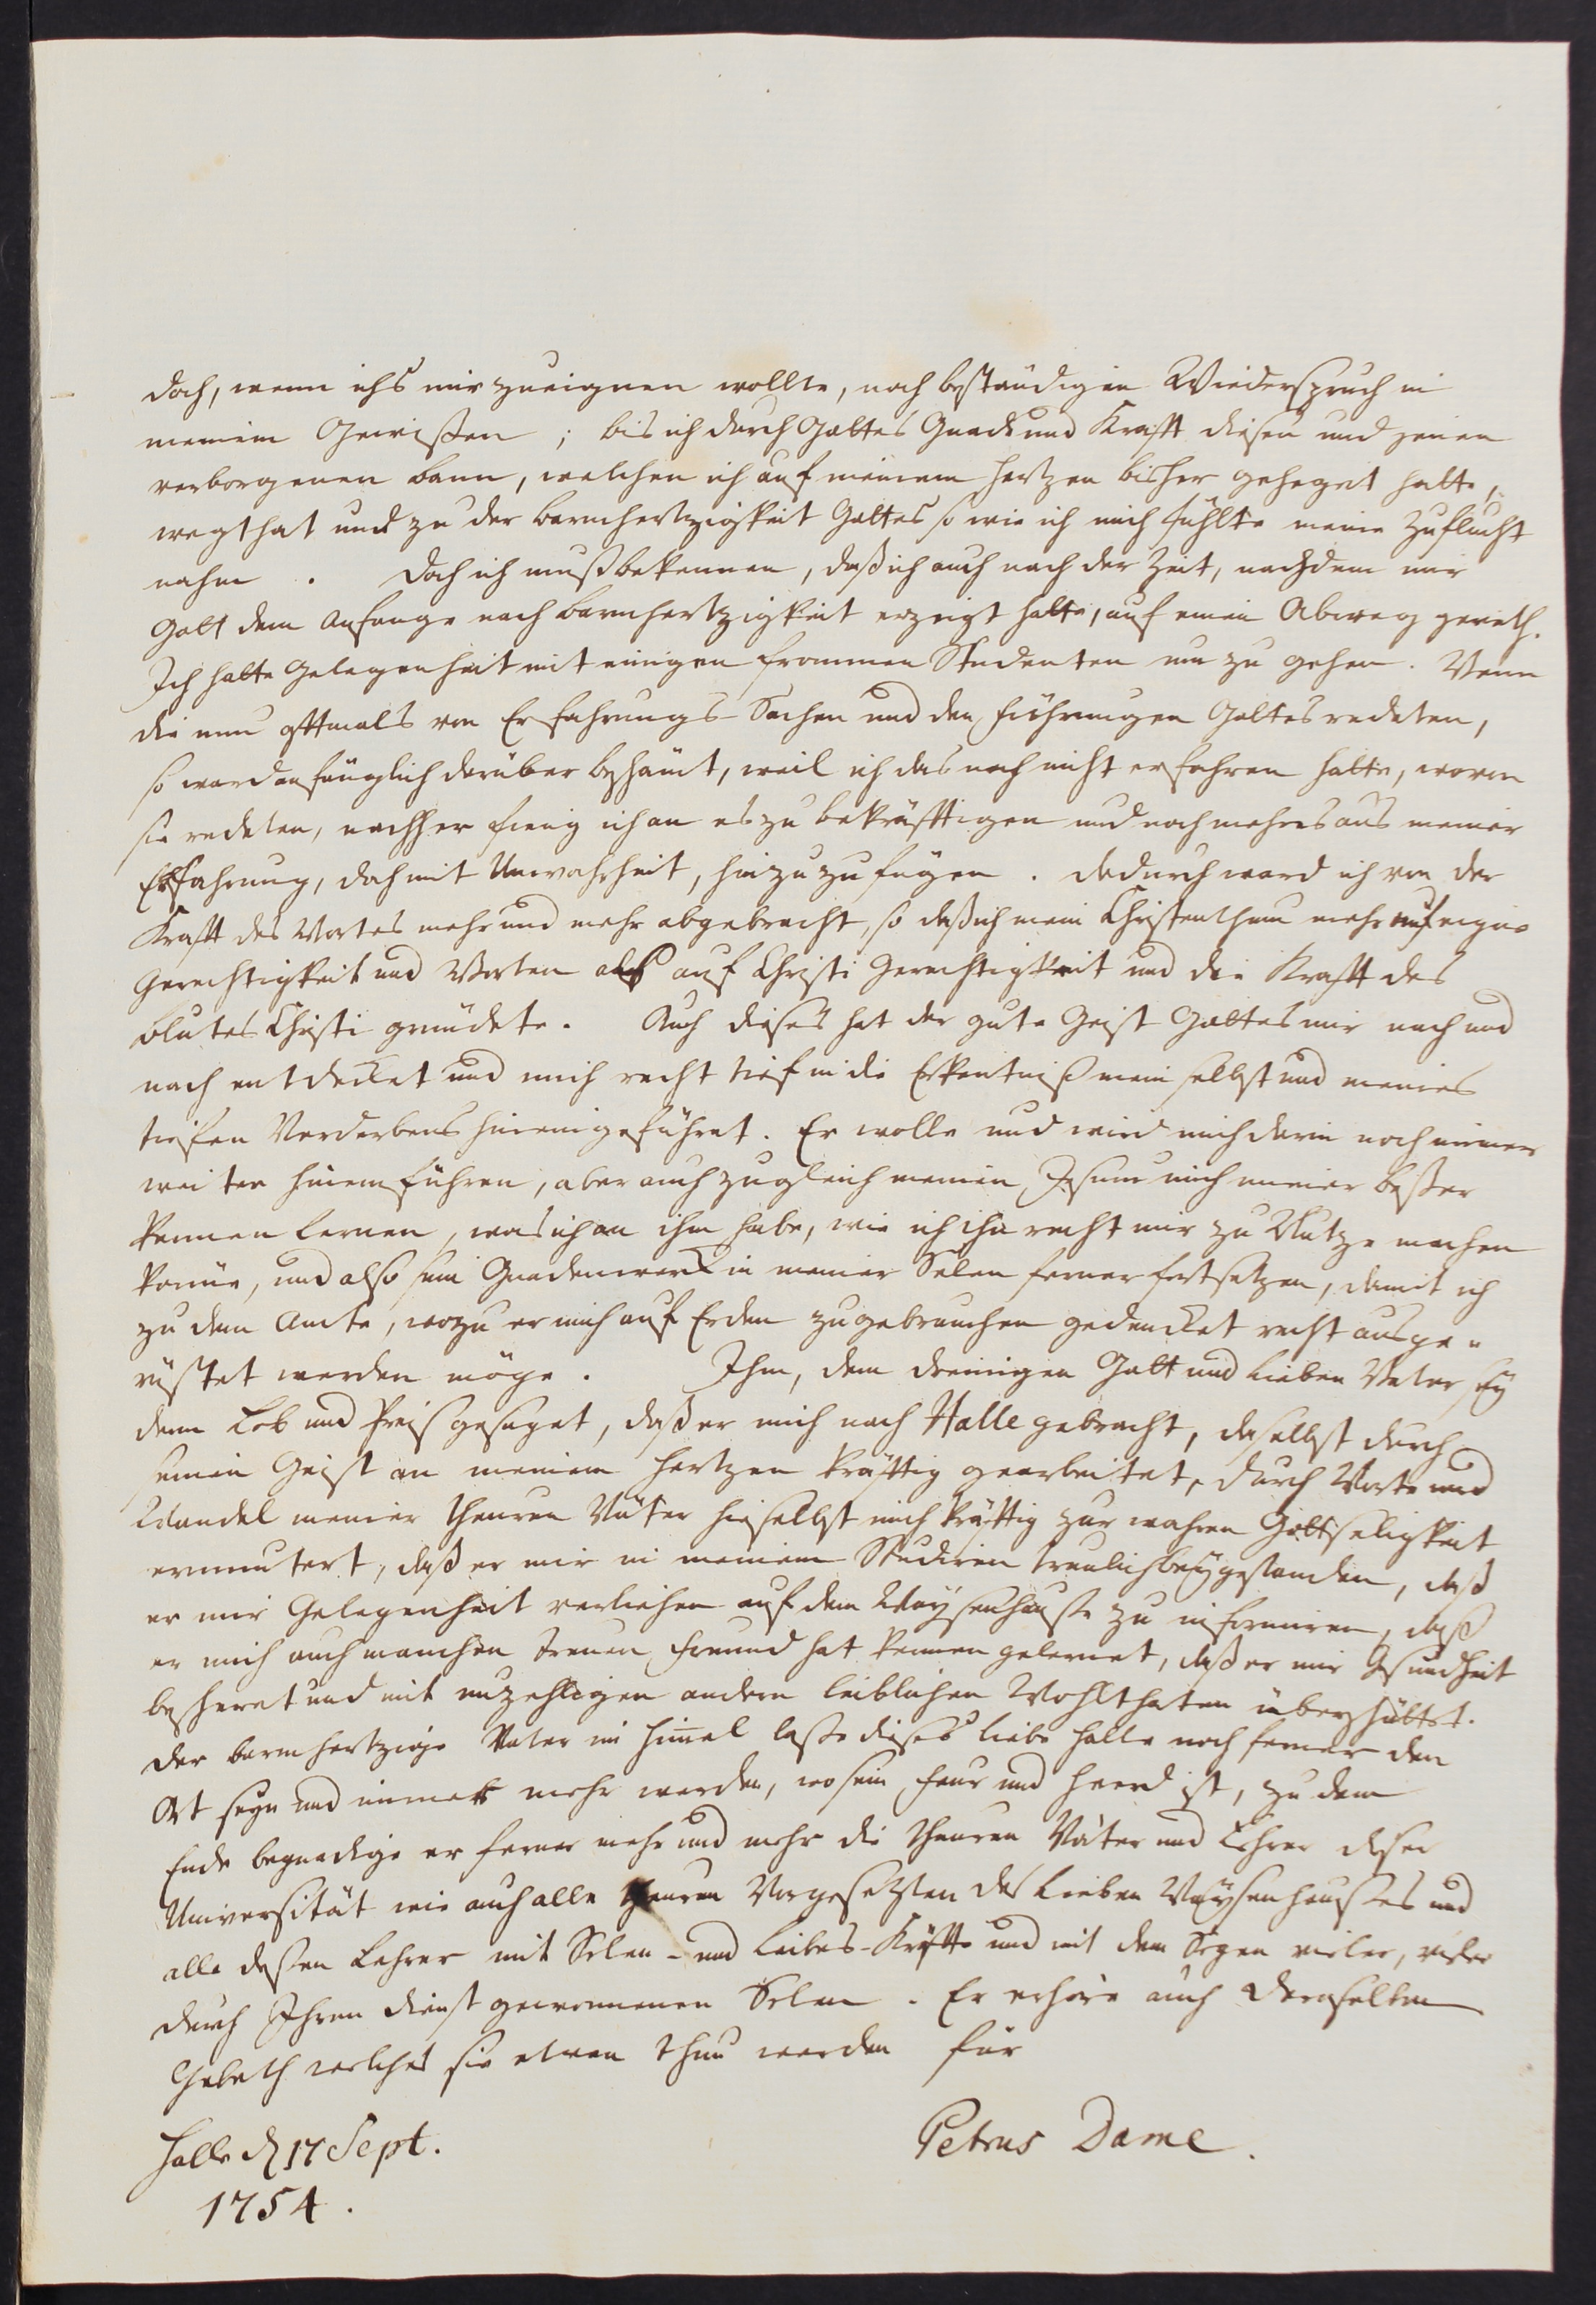 doch, wenn ichs mir zueignen wollte, noch beständigen Wiederspruch in
meinem Gewißen; bis ich durch Gottes Gnade und Krafft diesen und jenen
verborgenen bann, welchen ich auf meinem Hertzen bisher geheget hatte,
wegthat und zu der barmhertzigkeit Gottes so wie ich mich fühlte meine Zuflucht
nahm. Doch ich muß bekennen, daß ich auch nach der Zeit, nachdem mir
Gott dem anfange nach barmhertzigkeit erzeigt hatte, auf einen Abweg gerieth.
Ich hatte Gelegenheit mit einigen frommen Studenten um zu gehen. Wenn
die nun oftmals von Erfahrungs-Sachen und den Führungen Gottes redeten,
so ward anfänglich darüber beschämt, weil ich das noch nicht erfahren hatte, wovon
sie redeten, nachher fieng ich an es zu bekräfftigen und noch mehres aus meiner
Erfahrung, doch mit Unwahrheit, hinzuzufügen. Dadurch ward ich von der
Krafft des Wortes mehr und mehr abgebracht, so daß ich mein Christenthum mehr auf eigne
Gerechtigkeit und Worten als auf Christi Gerechtigkeit und die Krafft des
blutes Christi gründete. Auch dieses hat der gute Geist Gottes mir nach und
nach entdecket und mich recht tief in die Erkentniß mein selbst und meines
tiefen Verderbens hineingeführet. Er wolle und wird mich darin noch immer
weiter hineinführen, aber auch zugleich meinen Jesum mich immer beßer
kennen lernen, was ich an ihm habe, wie ich ihn recht mir zu Nutze machen
könne, und also sein Gnadenwerck in meiner Selen ferner fortsetzen, damit ich
zu dem Amte, wozu er mich auf Erden zugebrauchen gedencket recht ausge-
rüstet werden möge. Ihm, dem dreinigen Gott und lieben Vater sey
denn Lob und Preis gesaget, daß er mich nach Halle gebracht, daselbst durch
seinen Geist an meinem Hertzen kräfftig gearbeitet, durch Worte und
Wandel meiner theuren Väter hieselbst mich kräfftig zur wahren Gottseligkeit
ermuntert, daß er mir in meinem Studiren treulich beygestanden, daß
er mir Gelegenheit verliehen auf dem Waysenhause zu informiren, daß
er mich auch manchen treuen Freund hat kennen gelernet, daß er mir Gesundheit
bescheret und mit unzehligen andern leiblichen Wohlthaten überschüttet.
Der barmhertzige Vater im Himmel laße dieses liebe Halle noch ferner den
Ort seyn und immer mehr werden, wo sein Feur und Heerd ist, zu dem
Ende begnadige er ferner mehr und mehr die theuren Väter und Lehrer dieser
Universität wie auch alle theuren Vorgesetzten des lieben Waysenhauses und
alle deßen Lehrer mit Selen- und Leibes-Kräffte und mit dem Segen vieler, vieler
durch Ihren Dienst gewonnenen Selen. Er erhöre auch deroselben
Gebeth welches sie etwan thun werden für
Petrus Dame.
Halle d 17 Sept.
1754.